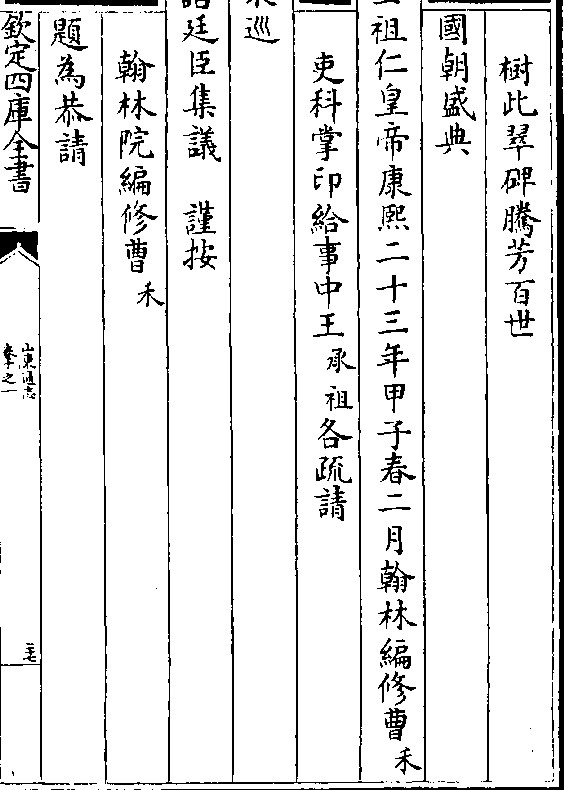 樹此翠碑騰芳百世
國朝盛典
祖仁皇帝康熙二十三年甲子春二月翰林編修曹禾
吏科掌印給事中王承祖各疏請
巡
廷臣集議 謹按
翰林院編修曹禾
題為恭請
欽定四庫全書
山東通志
卷之一
三七